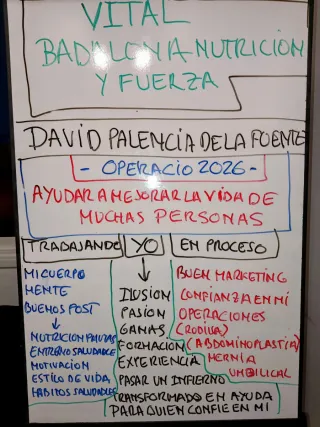 VITAL
BADALONA-NUTRICION
Y FUERZA
DAVID PALENCIA DE LA FUENTE
- OPERACIO 2026 -
AYUDAR A MEJORAR LA VIDA DE
MUCHAS PERSONAS
TRABAJANDE
MI CUERPO
MENTE
BUENOS POST
NUTRICION PAUTAS
ENTRENO SALUDABLE
MOTIVACION
ESTILO DE VIDA
HABITOS SALUDABLES
YO
ILUSION
PASION
GANAS
FORMACION
EXPERIENCIA
PASAR UN INFIERNO
TRANSFORMADO EN AYUDA
PARA QUIEN CONFIE EN MI
EN PROCESO
BUEN MARKETING
CONFIANZA EN MI
OPERACIONES
(RODILLA)
(ABDOMINOPLASTIA)
HERNIA
UMBILICAL